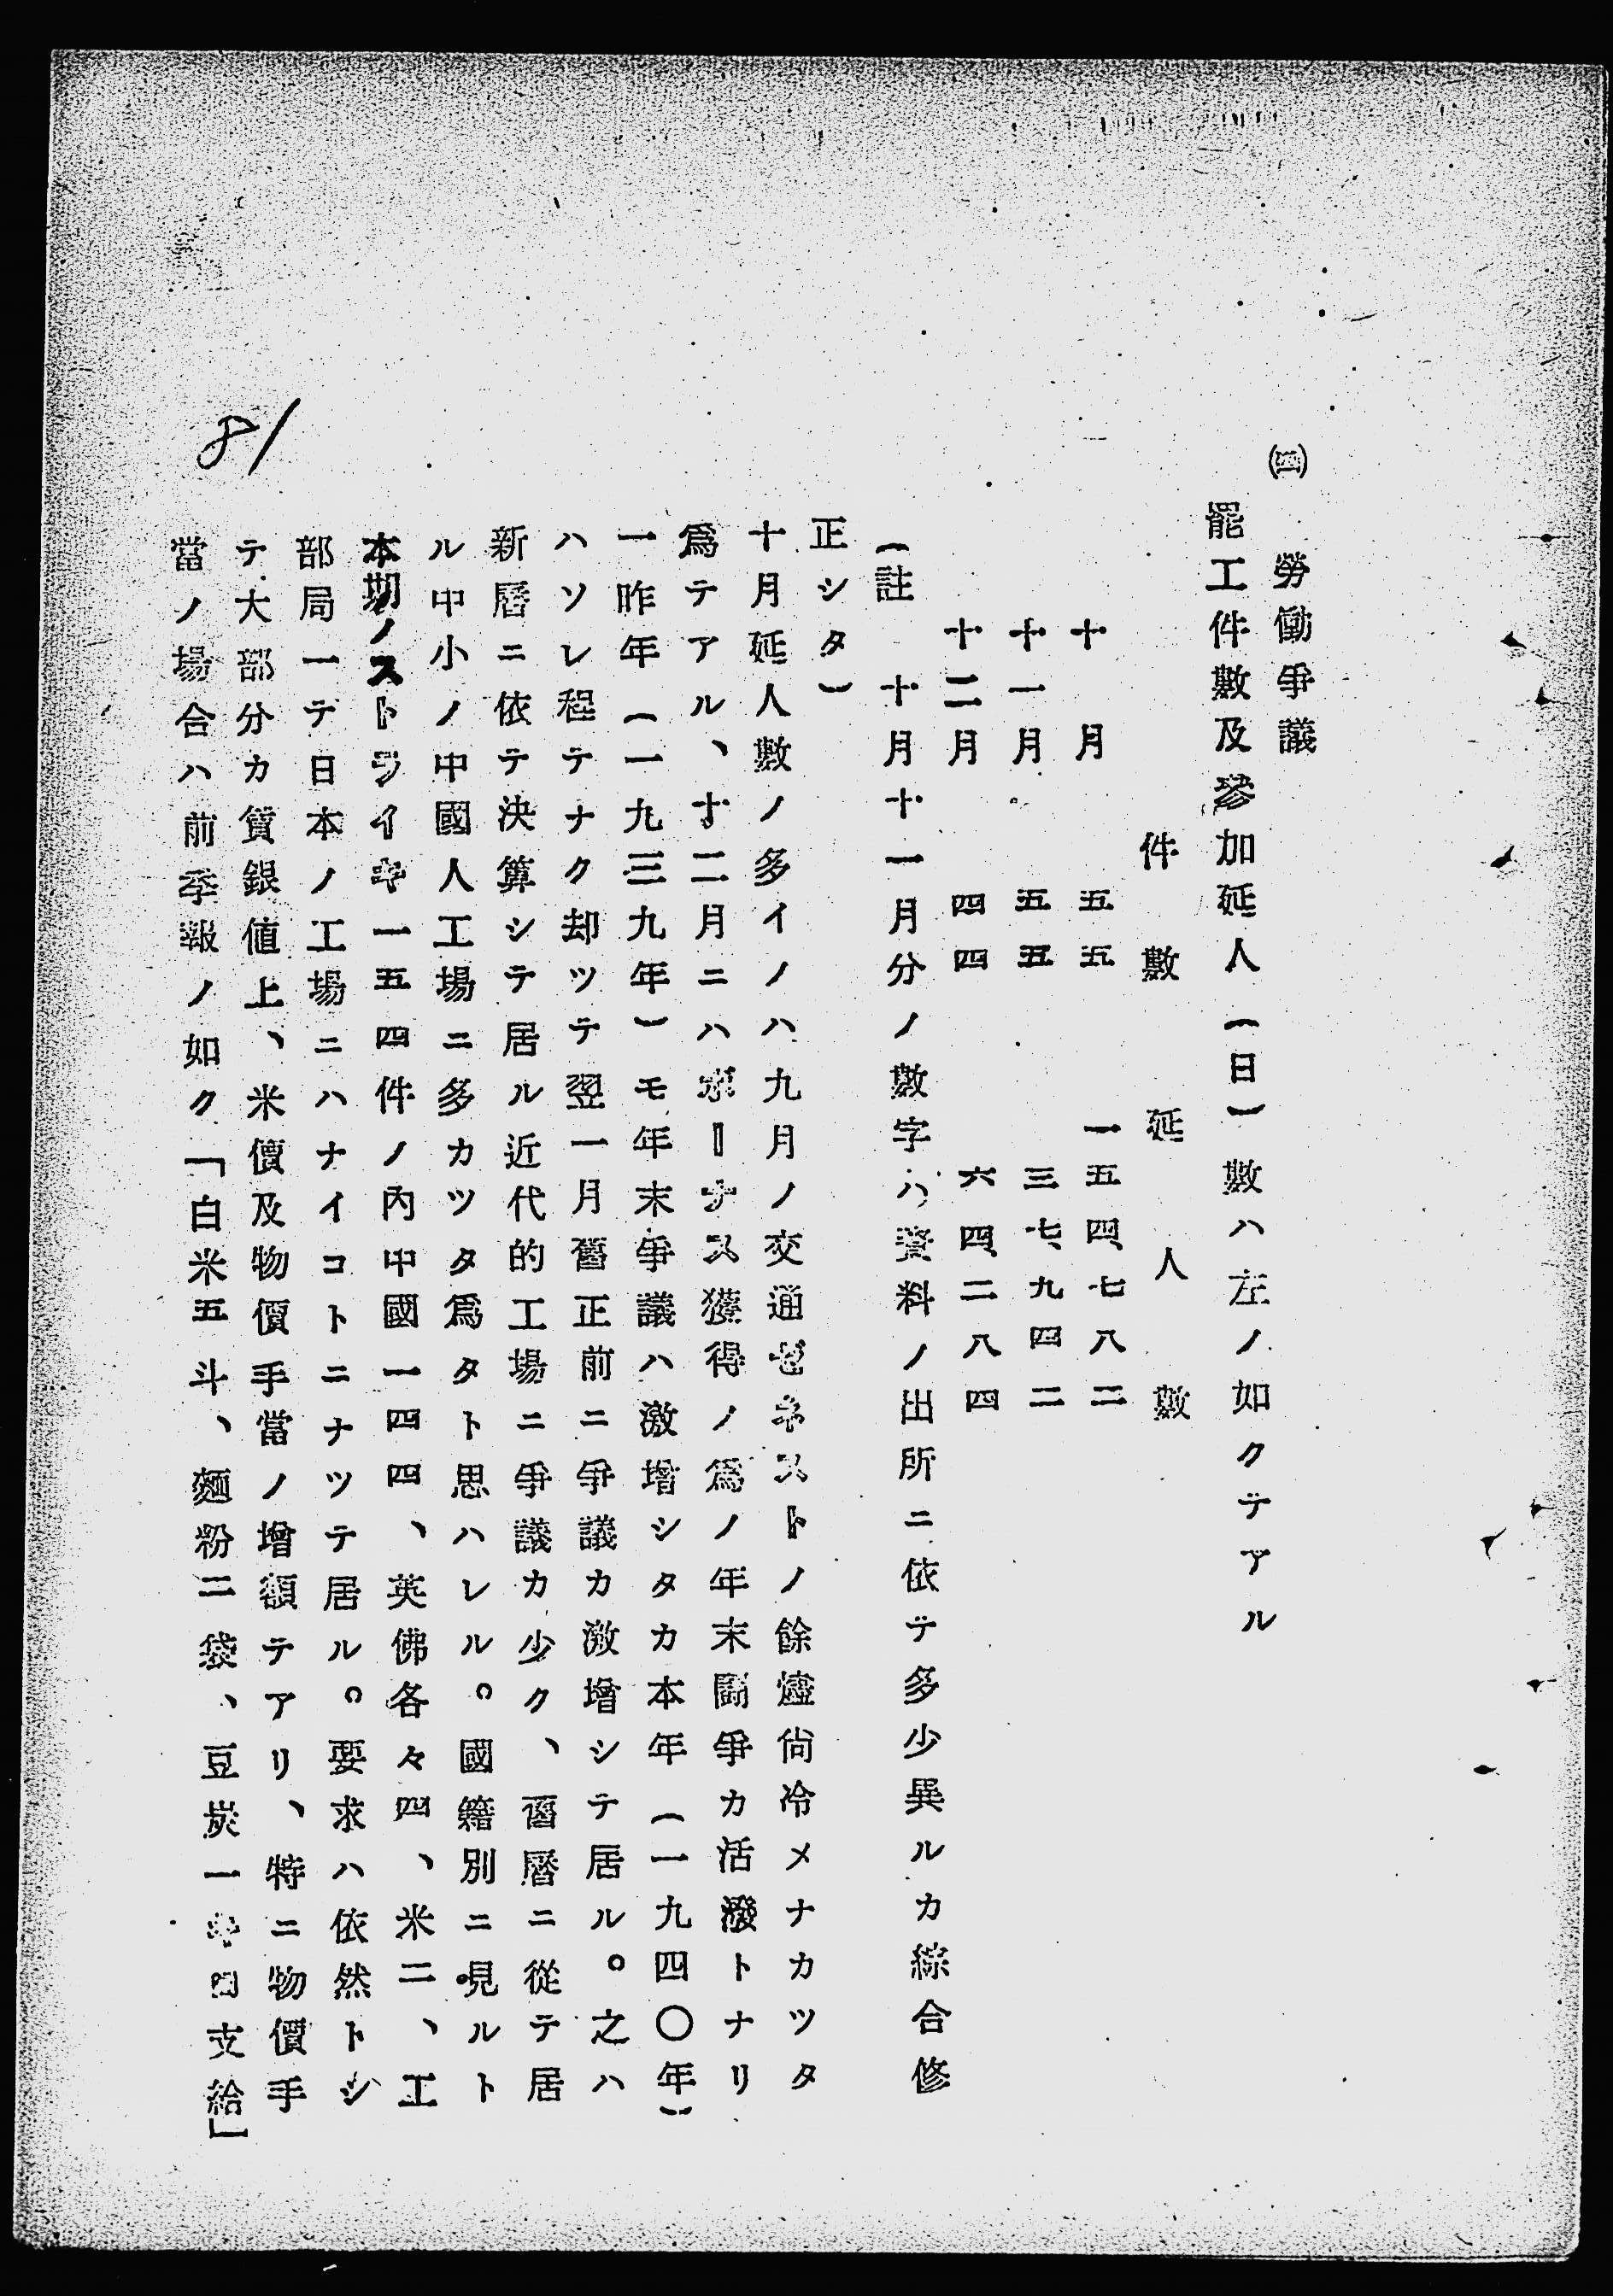 ㈣ 勞働爭議
罷工件數及參加延人(日)數ハ左ノ如クテアル
件數 延人數
十月 五五 一五四、七八二
十一月 五五 三七、九四二
十二月 四四 六四、二八四
(註 十月十一月分ノ數字ハ資料ノ出所ニ依テ多少異ルカ綜合修
正シタ)
十月延人數ノ多イノハ九月ノ交通ゼネストノ餘燼尙冷メナカツタ
爲テアル、十二月ニハボーナス獲得ノ爲ノ年末鬪爭カ活潑トナリ
一昨年(一九三九年)モ年末爭議ハ激增シタカ本年(一九四〇年)
ハソレ程テナク却ツテ翌一月舊正前ニ爭議カ激增シテ居ル。之ハ
新曆ニ依テ決算シテ居ル近代的工場ニ爭議カ少ク、舊曆ニ從テ居
ル中小ノ中國人工場ニ多カツタ爲タト思ハレル。國籍別ニ見ルト
本期ノストライキ一五四件ノ內中國一四四、英佛各々四、米二、工
部局一テ日本ノ工場ニハナイコトニナツテ居ル。要求ハ依然トシ
テ大部分カ賃銀値上、米價及物價手當ノ增額テアリ、特ニ物價手
當ノ場合ハ前季報ノ如ク「白米五斗、麵粉二袋、豆炭一キロ支給」
81